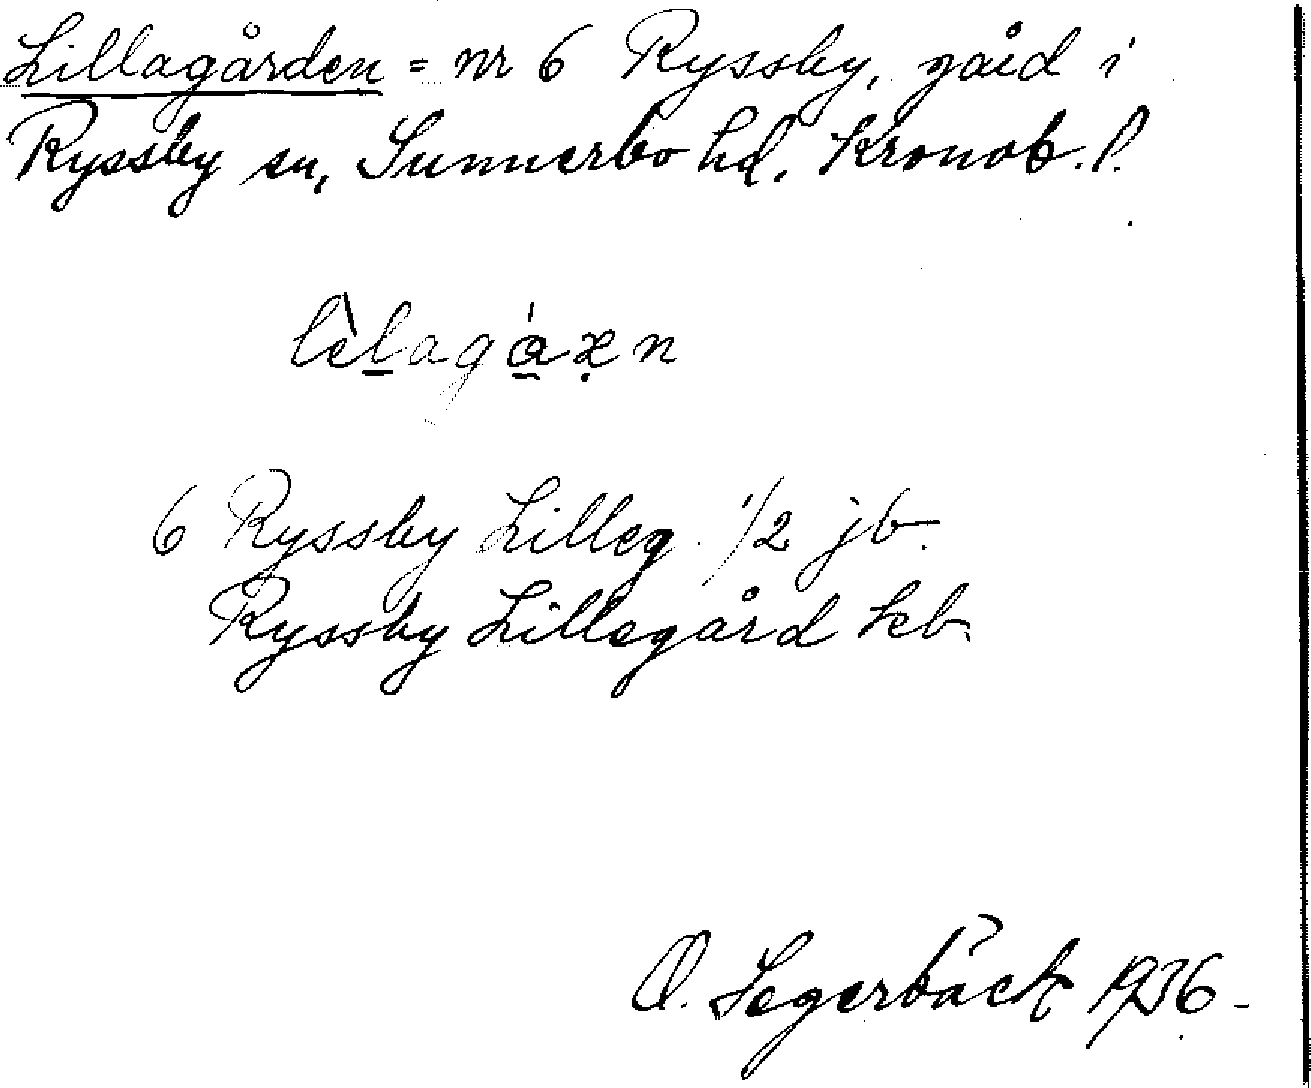 Lillagården = nr 6 Ryssby, gård i
Ryssby sn, Sunnerbo hd. Kronob. l.
6 Ryssby Lilleg. 1/2 jb.
Ryssby Lillegård keb
O. Segerbäck 1936